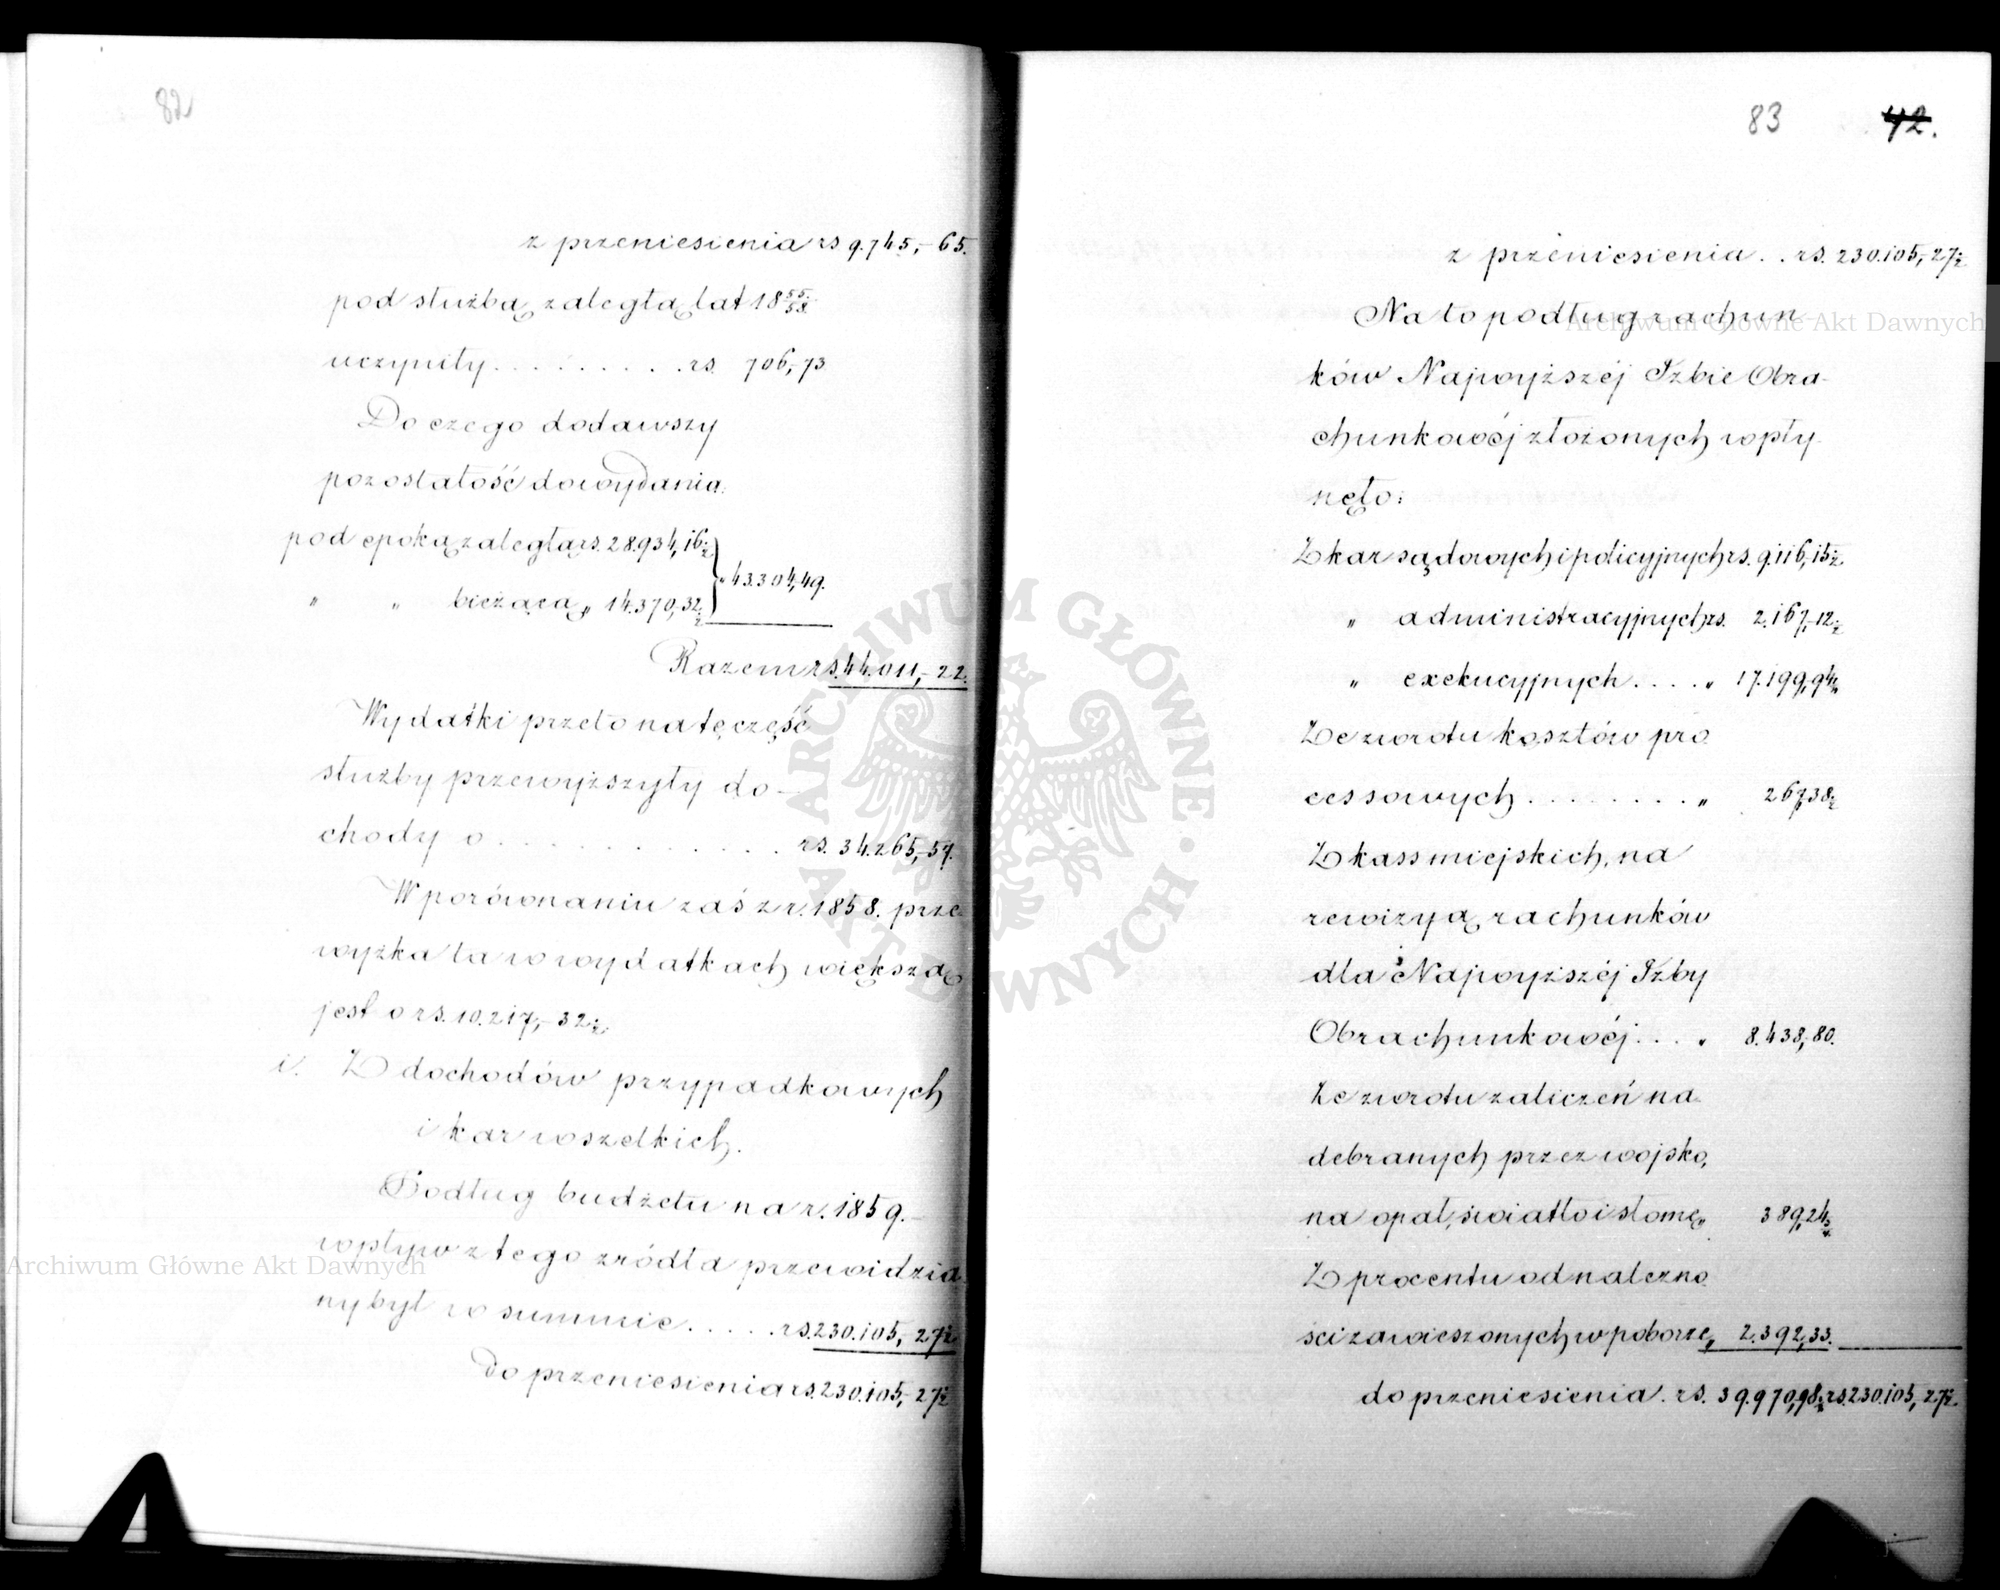 82
z przeniesienia rs 9.745,-65.
pod służbą zaległą lat 18 55/58.
uczyniły . . . . . . . . . rs. 706,-73
Do czego dodawszy
pozostałość do wydania:
pod epoką zaległą rs. 28.934,16 1/2
" " bieżącą " 14.370,32 1/2 } " 43.304,49.
Razem rs. 44.011,-22.
Wydatki przeto na tę część
służby przewyższyły do-
chody o . . . . . . . . . . . . rs. 34.265,-57.
W porównaniu zaś z r. 1858. prze-
wyżka ta w wydatkach większą
jest o rs. 10.217,-32 1/2.
i. Z dochodów przypadkowych
i kar wszelkich.
Podług budżetu na r. 1859.
wpływ z tego zródła przewidzia-
ny był w summie . . . . . rs. 230.105,-27 1/2
do przeniesienia rs. 230.105,-27 1/2
83
42.
z przeniesienia . . rs. 230.105,-27 1/2
Na to podług rachun-
ków Najwyższéj Izbie Obra-
chunkowéj złożonych wpły-
nęło:
Z kar sądowych i policyjnych rs. 9.116,15 1/2.
" administracyjnych rs. 2.167,-12 1/2
" exekucyjnych . . . . " 17.199,94 1/2
Ze zwrotu kosztów pro-
cessowych . . . . . . . . " 267,38 1/2
Z kass miejskich, na
rewizyą rachunków
dla Najwyższéj Izby
Obrachunkowéj . . . " 8.438,80.
Ze zwrotu zaliczeń na-
debranych przez wojsko,
na opał, światło i słomę " 389,24 3/4
Z procentu od należno-
ści zawieszonych w poborze " 2.392,33.
do przeniesienia . rs. 39.970,98 1/4 rs. 230.105,-27 1/2.
Archiwum Główne Akt Dawnych
Archiwum Główne Akt Dawnych
ARCHIWUM GŁÓWNE AKT DAWNYCH